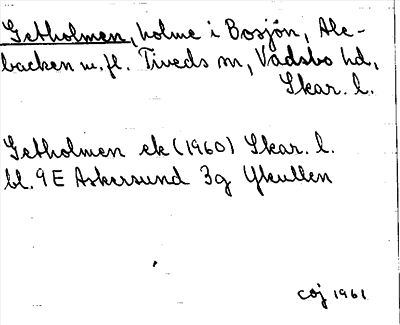 Getholmen, holme i Bosjön, Ale-
backen m.fl. Tiveds sn, Vadsbo hd,
Skar. l.
Getholmen ek (1960) Skar. l.
bl. 9E Askersund 3g Ykullen
COJ 1961